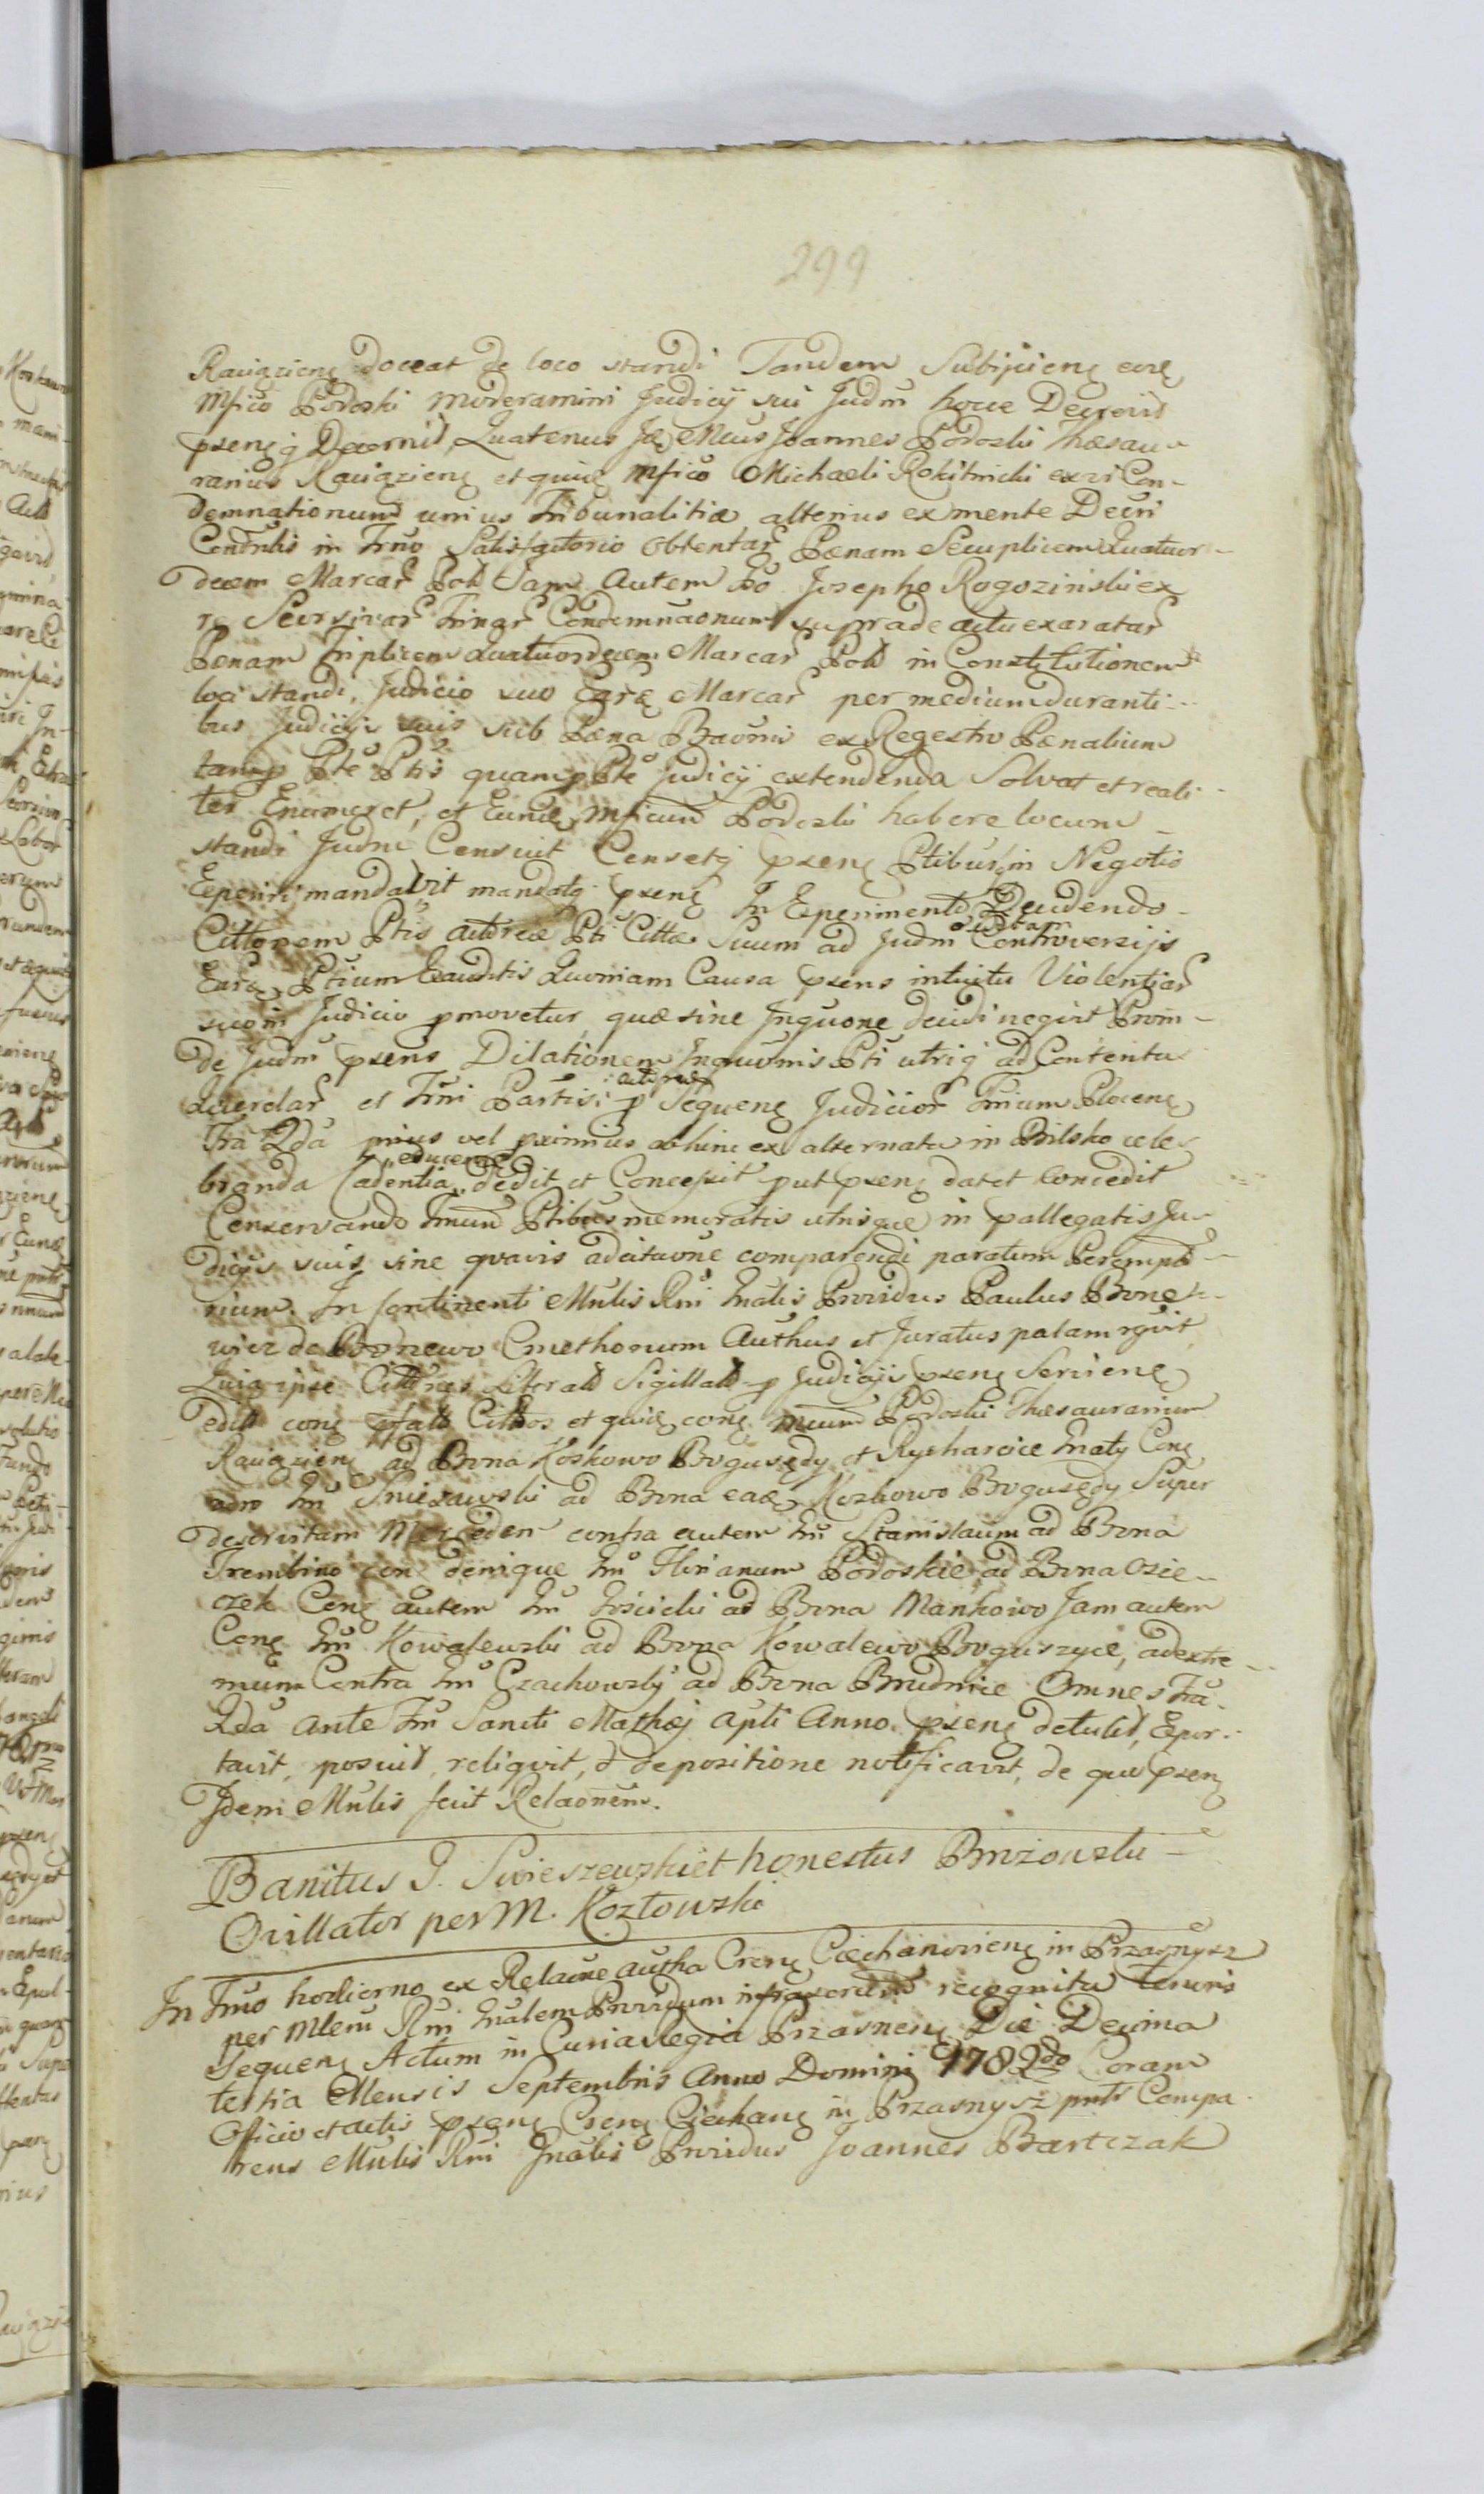 299
Raiązieng doceat de loco standi Tandem Subijcieng eorg
Mfico Podoski Moderamini Judicij sui Judm hocce Decrevit
pseng q Decernit, Quatenus Jg Mcus Joannes Podoski Thesau-
rarius Raiązieng et quig Mfico Michaeli Rokitnicki ex vi Con-
demnationum unius Tribunalitiæ alterius ex mente Decri
Contulis in Trno Satisfactorio Obtentar Pænam Secuplicem Quatuor-
decem Marcar Pol Jam Autem Gso Josepho Rogozinski ex
re Seorsivar Trinar Condemnaonum supra de actu exaratar
Pænam Triplicem Quatuordecem Marcar Pol in Constitutionem
loci standi, Judicio suo Earg Marcar per medium duranti-
bus Judicijs suis sub Pæna Baonis ex Regestro Pænalium
tam p Pte Ptis quam p Pte Judicij extendenda Solvat et reali-
ter Enumeret, et Eundg Mficum Podoski habere locum
standi Judm Censuit Censetq pseng Ptibus in Negotio
Eperiri mandavit mandatq pseng In Eperimento Decidendo
Cittonem Ptis actoreæ Pti Cittæ Suum ad Judm Controversijs
Earg Ptium Eauditis Quoniam Causa psens intuitu Violentiar
suo in Judicio pmovetur, quæ sine Inquone decidi nequit Proin-
de Judm psens Dilationem Inquonis Pti utriq ad Contenta
Querelar et Trni Partis: actoreæ p Sequeng Judicior Trium Ploceng
Fra 2da prius vel pximius abhinc ex alternata in Bilsko cele-
branda Cadentia educenæ dedit et Concessit put pseng dat et Concedit
Conservando Trnum Ptibus memoratis utrisque in pallegatis Ju-
dicijs suis sine quavis adcitaone comparendi paratum Perempto-
rium. In Continenti Mnlis Rni Gnalis Providus Paulus Bone-
wicz de Bonewo Cmethonum Authus et Juratus palam rgvit
Quia ipse Cittones Literalt Sigillalt p Judicijs pseng Servieng
edilt cong pfatt Cittos et quig cong Mcum Podoski Thesaurarium
Raiązieng ad Bona Koskowo Bogusędy et Rycharcice Gnaty Cong
Gnu Sniezawski ad Bona eadg Kozkowo Bogusędy Super
deservitam Mercedem contra autem Gnu Stanislaum ad Bona
Trembino cong denique Gnu Florianum Podoskie ad Bona Osie-
czek Cong autem Gnu Kościcki ad Bona Mankowo Jam autem
Cong Gnu Kowalewski ad Bona Kowalewo Boguszyce, ad extre-
mum Contra Gnu Czachowsky ad Bona Brudnice Omnes Fra
2da Ante Fm Sancti Mathæj Apti Anno pseng detulit, Epor-
tavit, posuit, reliqvit, d depositione notificavit, de quo pseng
Idem Mnlis fecit Relaonem.
Banitus J. Swieszewski et honestus Brzozowski
Ovillator per M. Kozłowski
In Trno hodierno ex Relaone autha Creng Ciechanovieng in Przasnysz
per Mlem Rni Gnalem Providum infrascrtum recognita tenoris
Sequeng Actum in Curia Regia Przasneng Die Decima
tertia Mensis Septembris Anno Domini 1782do Coram
Officio et actis pseng Creng Ciechang in Przasnysz pntr Compa-
rens Mnlis Rni Gnalis Providus Joannes Bartczak